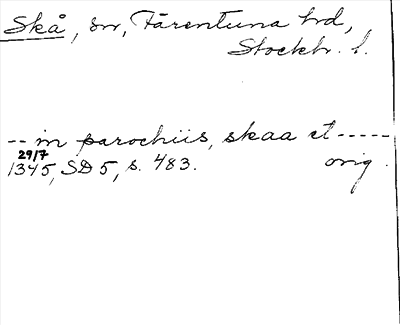 Skå, sn, Färentuna hd,
Stockh. l.
-- in parochiis, skaa et -----
29/7
1345, SD 5, s. 483. orig.